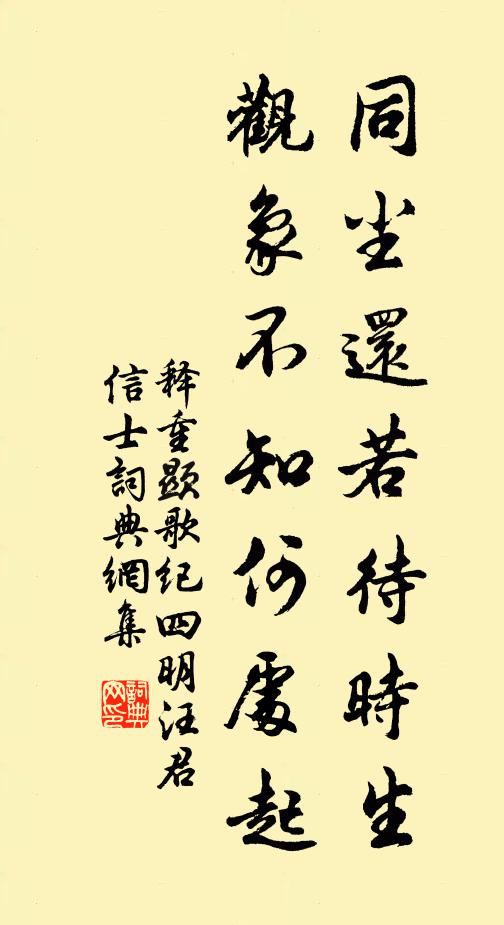 同尘還若待時生
觀象不知何處起
释重顯歌纪四明汪君
信士詞典網集
詞典网印